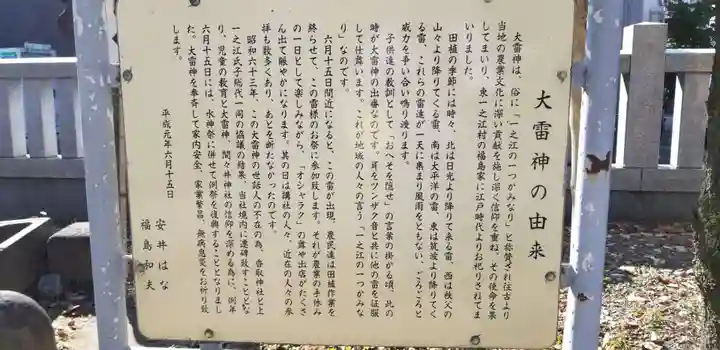 大雷神の由来
大雷神は、俗に「一之江の一つかみなり」と称賛され往古より
当地の農業文化に深い貢献を施し深く信仰を重ね、その使命を果
してまいり、東一之江村の福島家に江戸時代よりお祀りされてま
いりました。
田植の季節には時々、北は日光より降りて来る雷、西は秩父の
山々より降りてくる雷、南は太平洋の雷、東は筑波より降りてく
る雷、これらの雷達が一天に集まり風雨をともない、ごろごろと
威力を争い合い鳴り渡ります。
子供達の教訓として「おへそを隠せ」の言葉の掛かる頃、此の
時が大雷神の出番なのです。耳をツンザク音と共に他の雷を征服
して仕舞います。これが地域の人々の言う「一之江の一つかみな
り」なのです。
六月十五日間近になると、この雷が出現、農民達は田植作業を
終らせて、この雷様のお祭に参加致します。それが農業の手休み
の一日として楽しみながら、「オシャラク」の舞や出店がたくさ
ん出て賑やかになります。其の日は講社の人々、近在の人々の参
拝も数多くあり、あとを断たなかったのです。
昭和六十三年、この大雷神の世話人の不在の為、香取神社と上
一之江氏子総代一同の協議の結果、当社境内に遷碑致すこととな
り、児童の教育と大雷神、間々井神社の信仰を深める為に、例年
六月十五日には、水神祭に併せて例祭を復興することとなりまし
た。大雷神を奉斉して家内安全、家業繁昌、無病息災をお祈り致
します。
平成元年六月十五日
安井はな
福島和夫